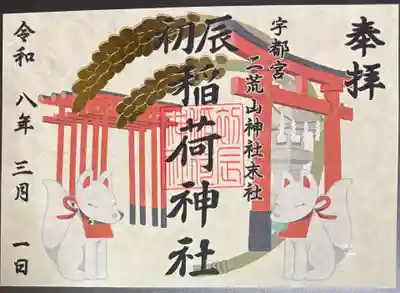 奉拝
宇都宮
二荒山神社末社
初辰
稲荷神社
令和八年三月一日